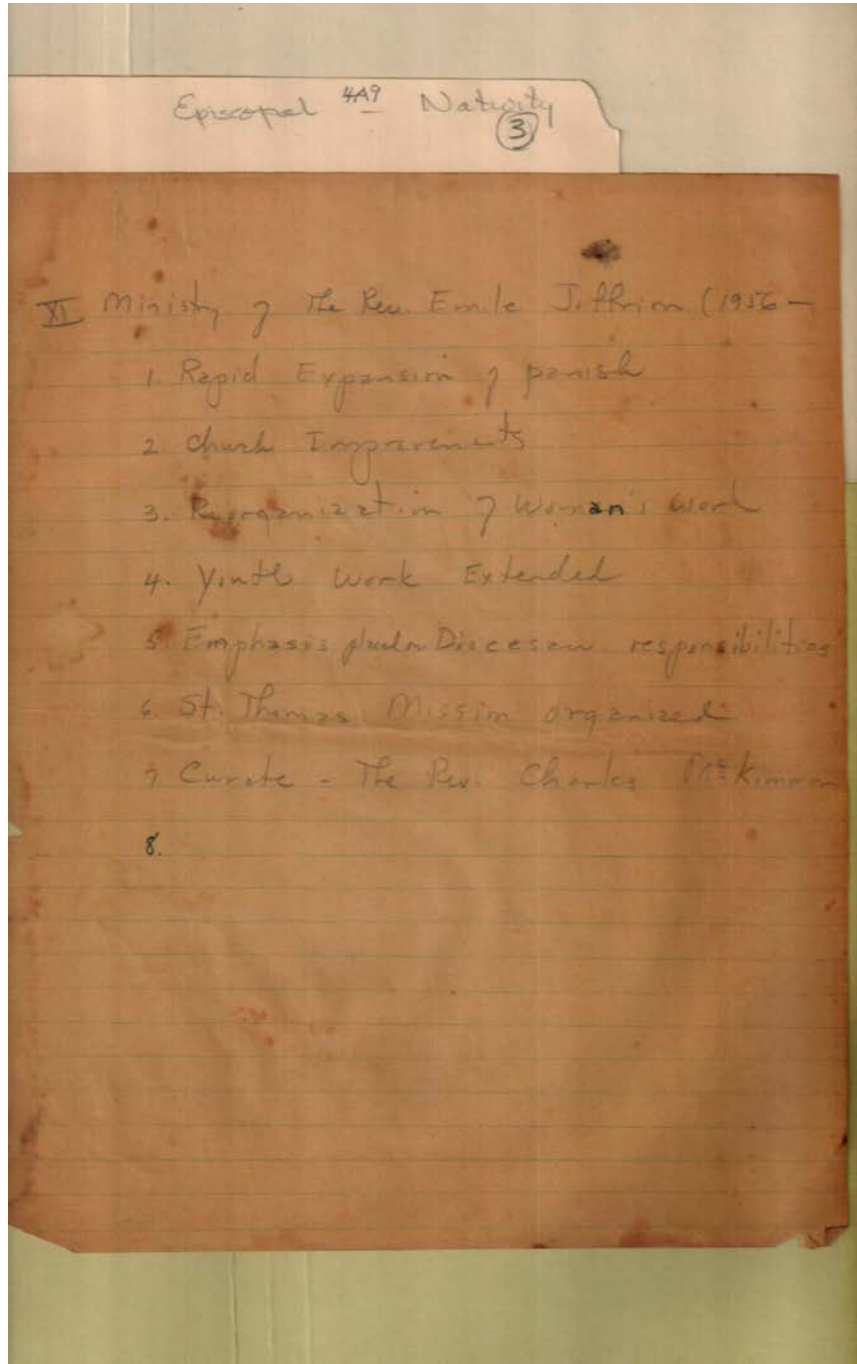 Episcopal 4A9 Nativity
3
XI Ministry of The Rev. Emile Joffrion (1956 —
1. Rapid Expansion of parish
2 Church Improvements
3. Reorganization of Woman's Work
4. Youth Work Extended
5 Emphasis on Diocesan responsibilities
6. St. Thomas Mission organized
7 Curate - The Rev. Charles McKimmon
8.